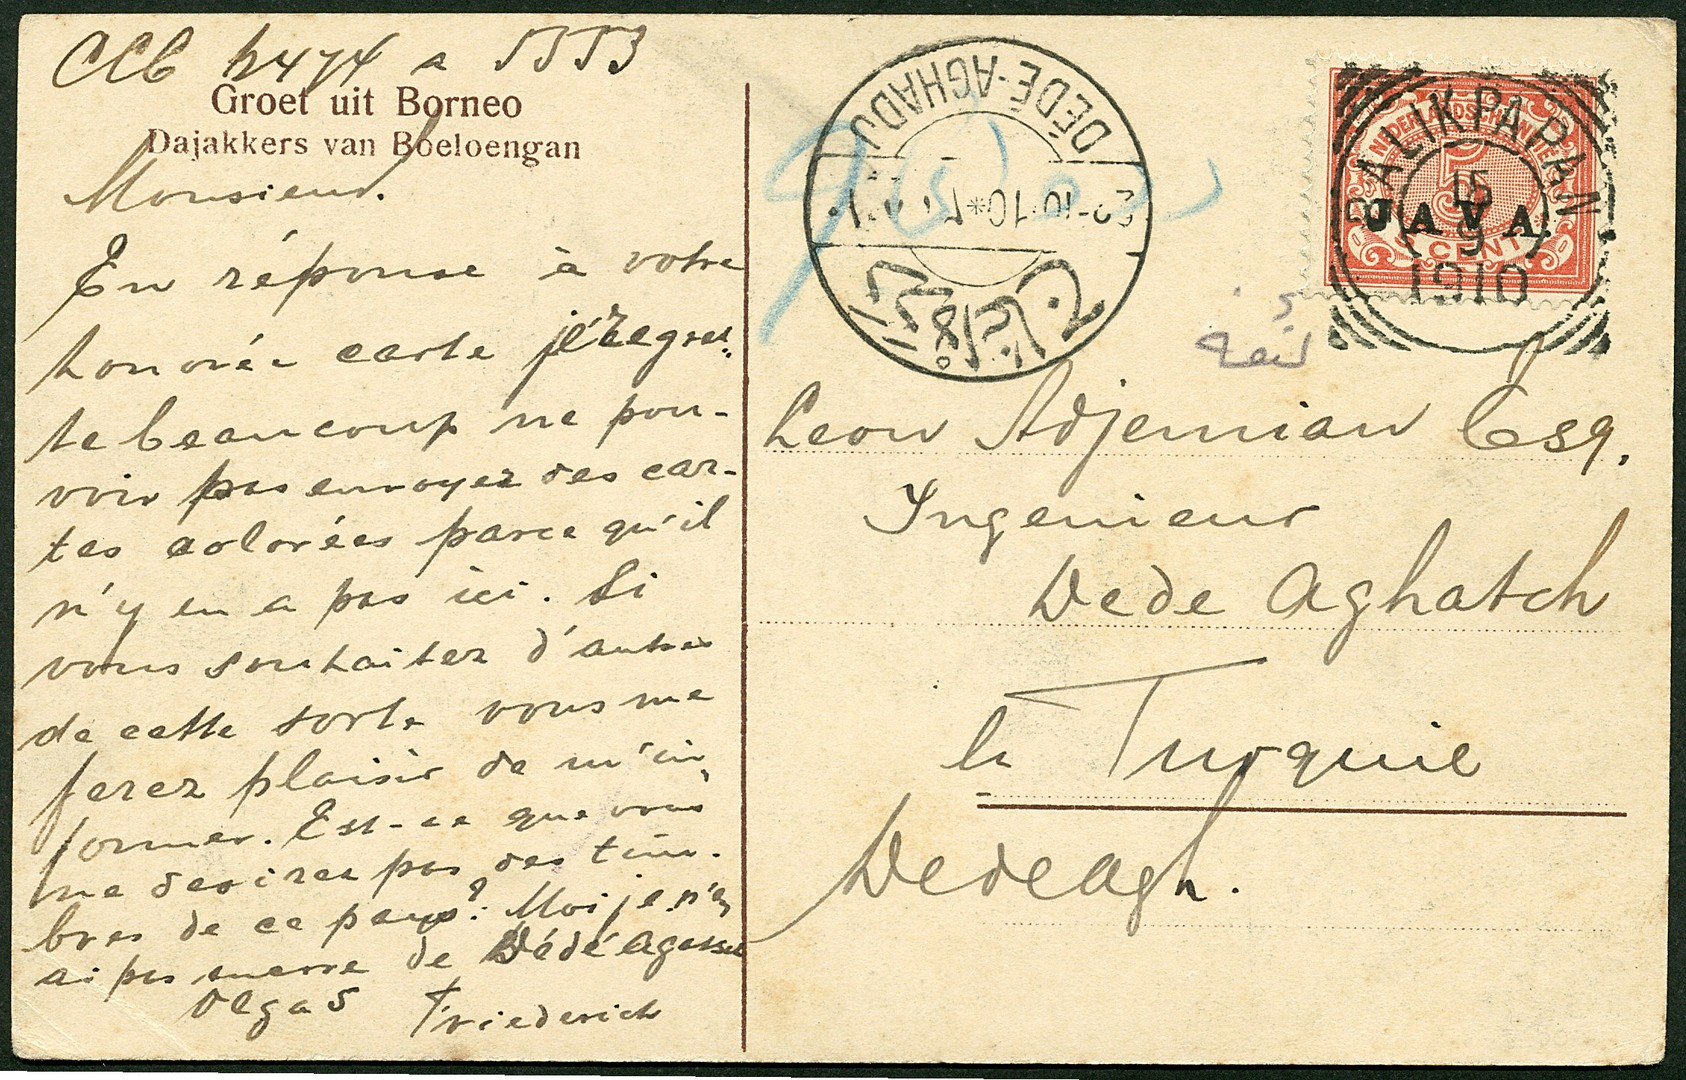 CCC
a
Groet uit Borneo
Dajakkers van Boeloengan
Monsieur.
En réponse à votre
honorée carte je regret-
te beaucoup ne pou-
voir pas envoyer des car-
tes colorées parce qu'il
n'y en a pas ici. Si
vous souhaitez d'autres
de cette sorte vous me
ferez plaisir de m'in-
former. Est-ce que vous
ne desirez pas des tim-
bres de ce pays? Moi je n'en
ai pas encore de Dédéagatsch
Olga S Friederich
DÉDÉ-AGHADJ
NEDERLANDSCH-INDIË
5
CENT
JAVA.
BALIKPAPAN
15
9
1910
Leon Adjemian Esq.
Ingenieur
Dede Aghatch
Turquie
Dedeagh.